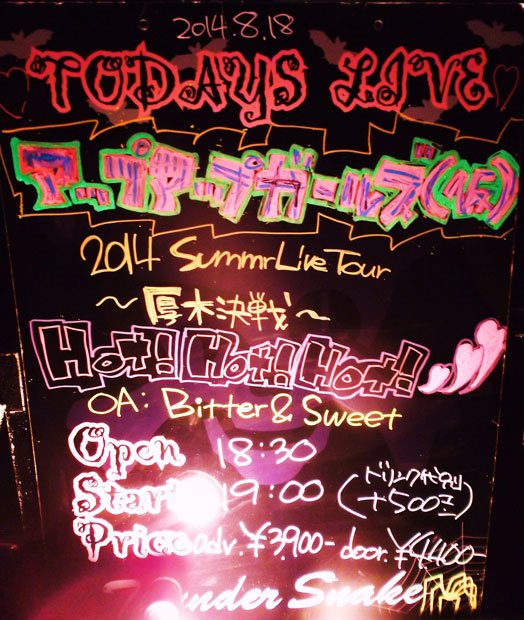 2014.8.18
TODAYS LIVE
アップアップガールズ(仮)
2014 SummrLiveTour
～厚木決戦～
Hot! Hot! Hot!
OA: Bitter & Sweet
Open 18:30
Start 19:00 (ドリンク代別 +500円)
Price adv. ¥3900- door. ¥4400-
Thunder Snake